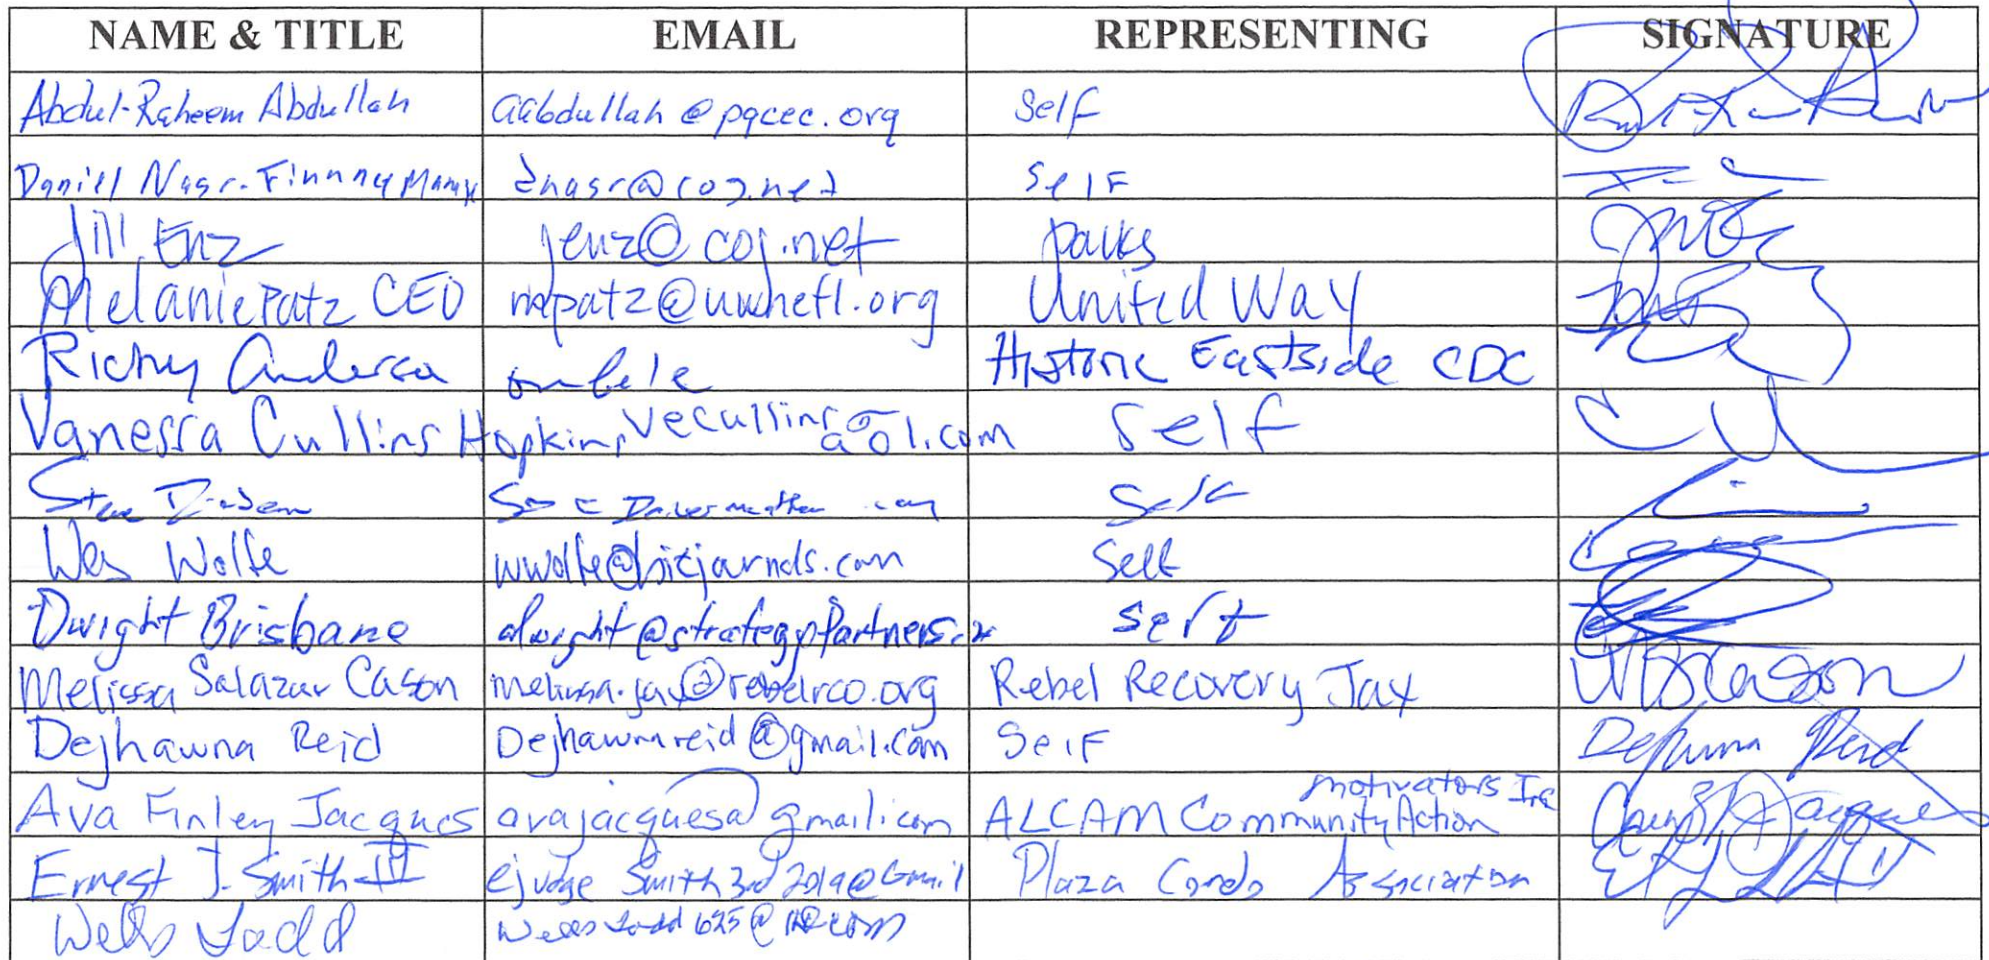 NAME & TITLE EMAIL REPRESENTING SIGNATURE
Abdul-Raheem Abdullah aabdullah@pqcec.org Self
Daniell Nasr. dnasr@coj.net Self
Jill Enz jenz@coj.net parks
Melanie Patz CEO mepatz@uwnefl.org United Way
Richy Historic Eastside CDC
Vanessa Cullins Hopkins vecullins@aol.com Self
Steve Self
Wes Wolfe wwolfe@bizjournals.com Self
Dwight Brisbane Self
Melissa Salazar Cason melissa.jax@rebelrco.org Rebel Recovery Jax
Dejhawna Reid Dejhawnareid@gmail.com Self
Ava Finley Jacques avajacques@gmail.com ALCAM Community Action motivators Inc
Ernest J. Smith III ejudge Smith3rd2019@Gmail Plaza Condo Association
Wells Todd